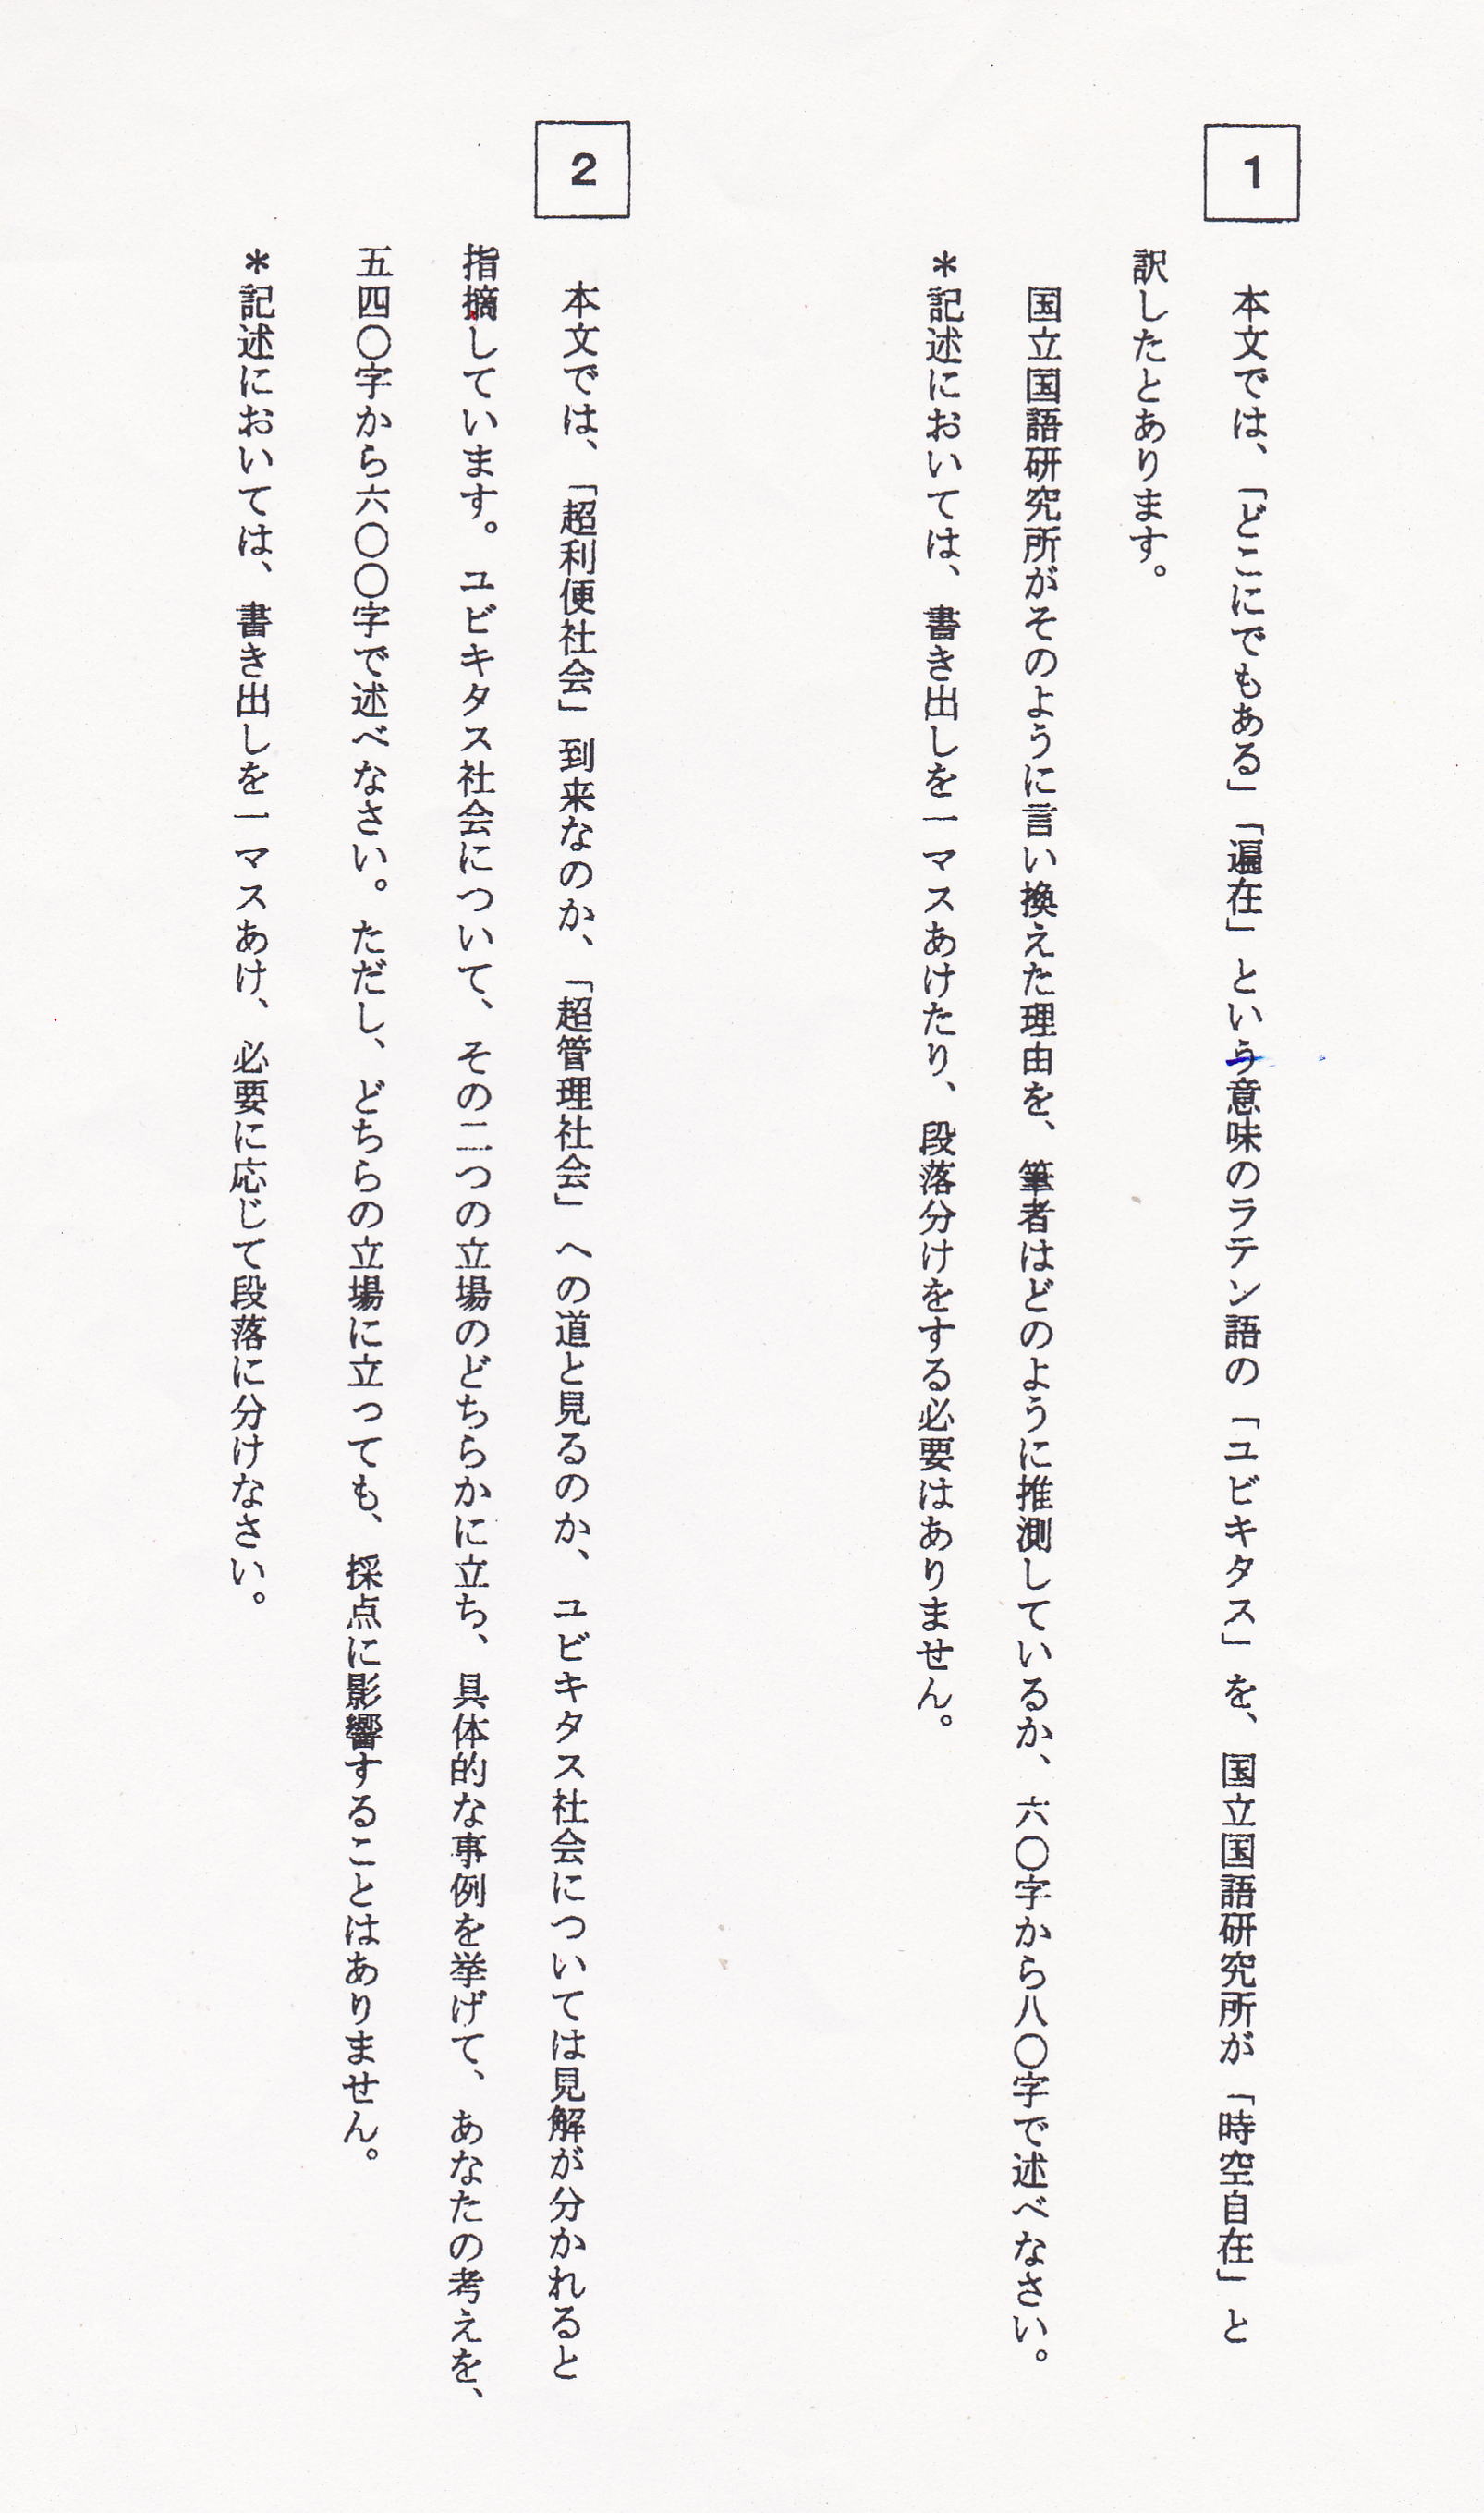 1
本文では、「どこにでもある」「遍在」という意味のラテン語の「ユビキタス」を、国立国語研究所が「時空自在」と
訳したとあります。
国立国語研究所がそのように言い換えた理由を、筆者はどのように推測しているか、六〇字から八〇字で述べなさい。
＊記述においては、書き出しを一マスあけたり、段落分けをする必要はありません。
2
本文では、「超利便社会」到来なのか、「超管理社会」への道と見るのか、ユビキタス社会については見解が分かれると
指摘しています。ユビキタス社会について、その二つの立場のどちらかに立ち、具体的な事例を挙げて、あなたの考えを、
五四〇字から六〇〇字で述べなさい。ただし、どちらの立場に立っても、採点に影響することはありません。
＊記述においては、書き出しを一マスあけ、必要に応じて段落に分けなさい。